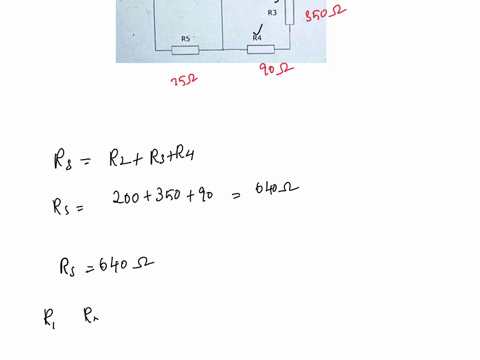 R3
350Ω
R5
R4
25Ω
90Ω
Rs = R2 + R3 + R4
Rs = 200 + 350 + 90 = 640Ω
Rs = 640 Ω
R1